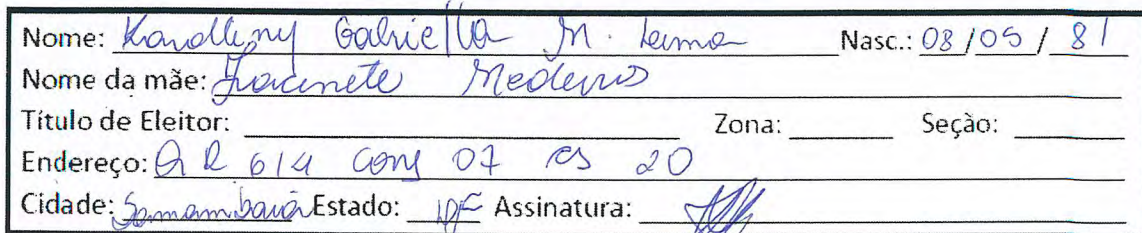 Nome: Karolleny Gabriella M. Lima Nasc.: 08/05/81
Nome da mãe: Iracinete Medeiros
Título de Eleitor: Zona: Seção:
Endereço: QR 614 Conj 07 cs 20
Cidade: Samambaia Estado: DF Assinatura: